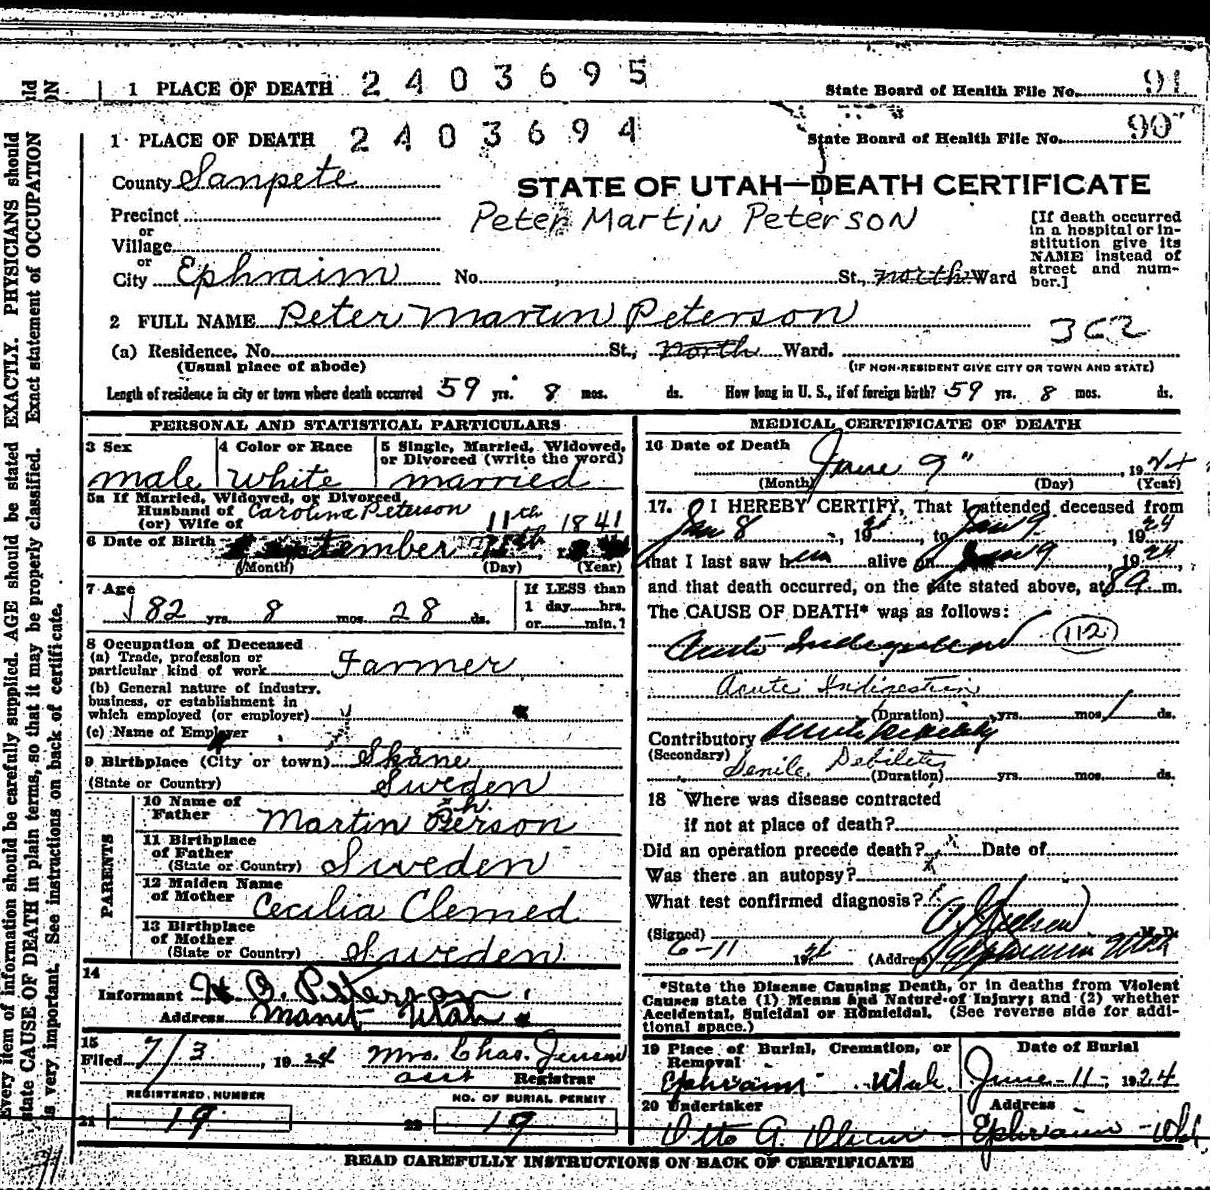 1 PLACE OF DEATH 2403695 State Board of Health File No. 91
1 PLACE OF DEATH 2403694 State Board of Health File No. 90
County Sanpete
STATE OF UTAH—DEATH CERTIFICATE
Peter Martin Peterson
Precinct
or
Village
or
City Ephraim No. St., North Ward
[If death occurred
in a hospital or in-
stitution give its
NAME instead of
street and num-
ber.]
2 FULL NAME Peter Martin Peterson
(a) Residence. No. St., North Ward.
(Usual place of abode) (IF NON-RESIDENT GIVE CITY OR TOWN AND STATE)
Length of residence in city or town where death occurred 59 yrs. 8 mos. ds. How long in U. S., if of foreign birth? 59 yrs. 8 mos. ds.
PERSONAL AND STATISTICAL PARTICULARS
3 Sex 4 Color or Race 5 Single, Married, Widowed,
or Divorced (write the word)
male white married
5a If Married, Widowed, or Divorced
Husband of Carolina Peterson
(or) Wife of
11th 1841
6 Date of Birth September
(Month) (Day) (Year)
7 Age If LESS than
82 yrs. 8 mos. 28 ds. 1 day hrs.
or min.?
8 Occupation of Deceased
(a) Trade, profession or
particular kind of work Farmer
(b) General nature of industry,
business, or establishment in
which employed (or employer)
(c) Name of Employer
9 Birthplace (City or town) Skåne
(State or Country) Sweden
PARENTS
10 Name of
Father Martin Person
11 Birthplace
of Father
(State or Country) Sweden
12 Maiden Name
of Mother Cecilia Clemed
13 Birthplace
of Mother
(State or Country) Sweden
14
Informant O. Peterson
Address Manti Utah
15
Filed 7/3, 1924 Mrs. Chas. Jensen
asst Registrar
REGISTERED NUMBER NO. OF BURIAL PERMIT
21 19 22 19
MEDICAL CERTIFICATE OF DEATH
16 Date of Death
June 9" 1924
(Month) (Day) (Year)
17. I HEREBY CERTIFY, That I attended deceased from
8, 19, to 9, 1924
that I last saw him alive on 9, 1924,
and that death occurred, on the date stated above, at m.
The CAUSE OF DEATH* was as follows:
Acute Indigestion 112
Acute Indigestion
(Duration) yrs. mos. 1 ds.
Contributory Senile Debility
(Secondary) Senile Debility
(Duration) yrs. mos. ds.
18 Where was disease contracted
if not at place of death?
Did an operation precede death? Date of
Was there an autopsy?
What test confirmed diagnosis?
(Signed) M. D.
6-11 1924 (Address) Ephraim Utah
*State the Disease Causing Death, or in deaths from Violent
Causes state (1) Means and Nature of Injury; and (2) whether
Accidental, Suicidal or Homicidal. (See reverse side for addi-
tional space.)
19 Place of Burial, Cremation, or
Removal
Date of Burial
Ephraim Utah June-11-, 1924
20 Undertaker Address
Otto A. Olson Ephraim-Utah
READ CAREFULLY INSTRUCTIONS ON BACK OF CERTIFICATE
Every item of information should be carefully supplied. AGE should be stated EXACTLY. PHYSICIANS should
state CAUSE OF DEATH in plain terms, so that it may be properly classified. Exact statement of OCCUPATION
is very important. See instructions on back of certificate.